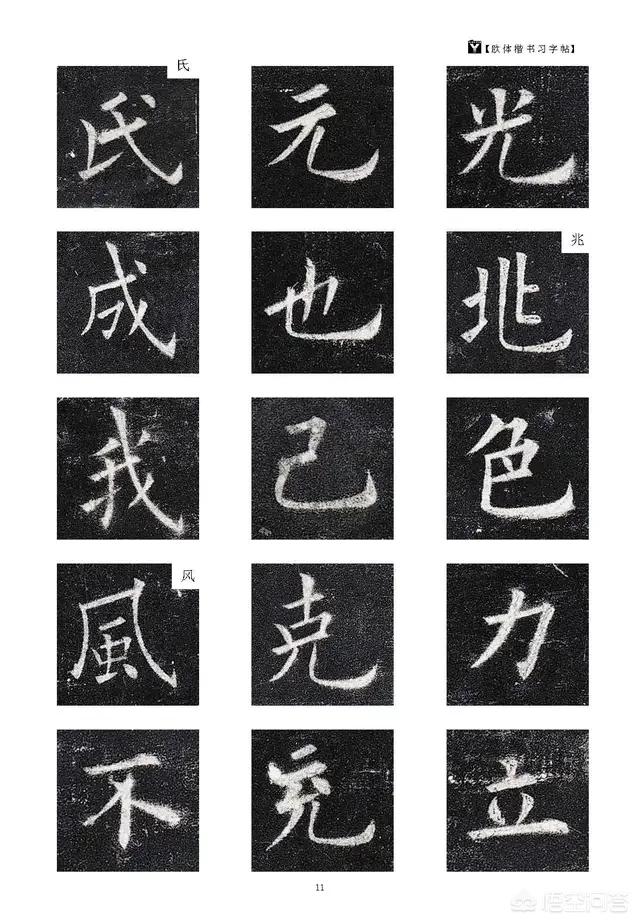 【欧体楷书习字帖】
氏
氏 元 光
兆
成 也 兆
我 己 色
风
風 克 力
不 充 立
11
悟空问答